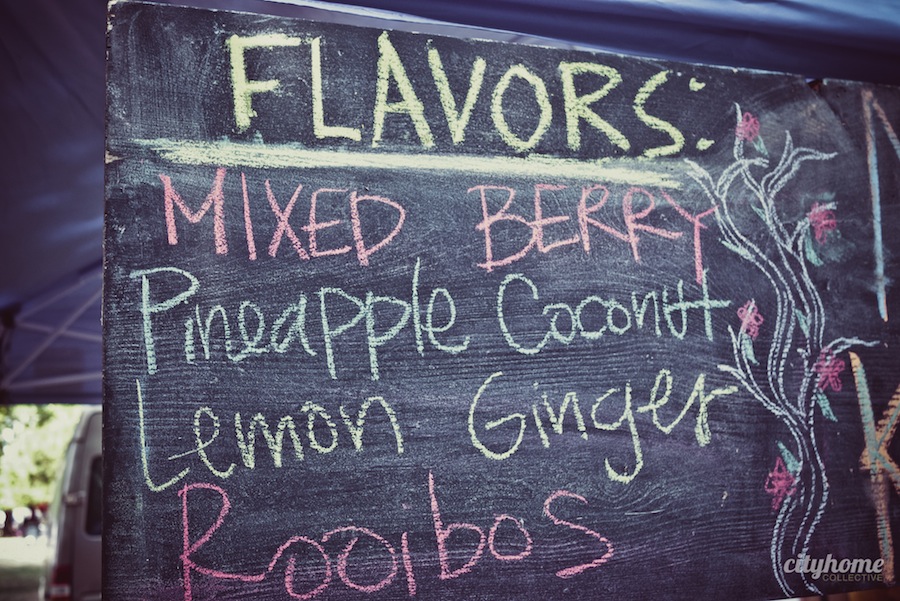 FLAVORS:
MIXED BERRY
Pineapple Coconut
Lemon Ginger
Rooibos
cityhome
COLLECTIVE